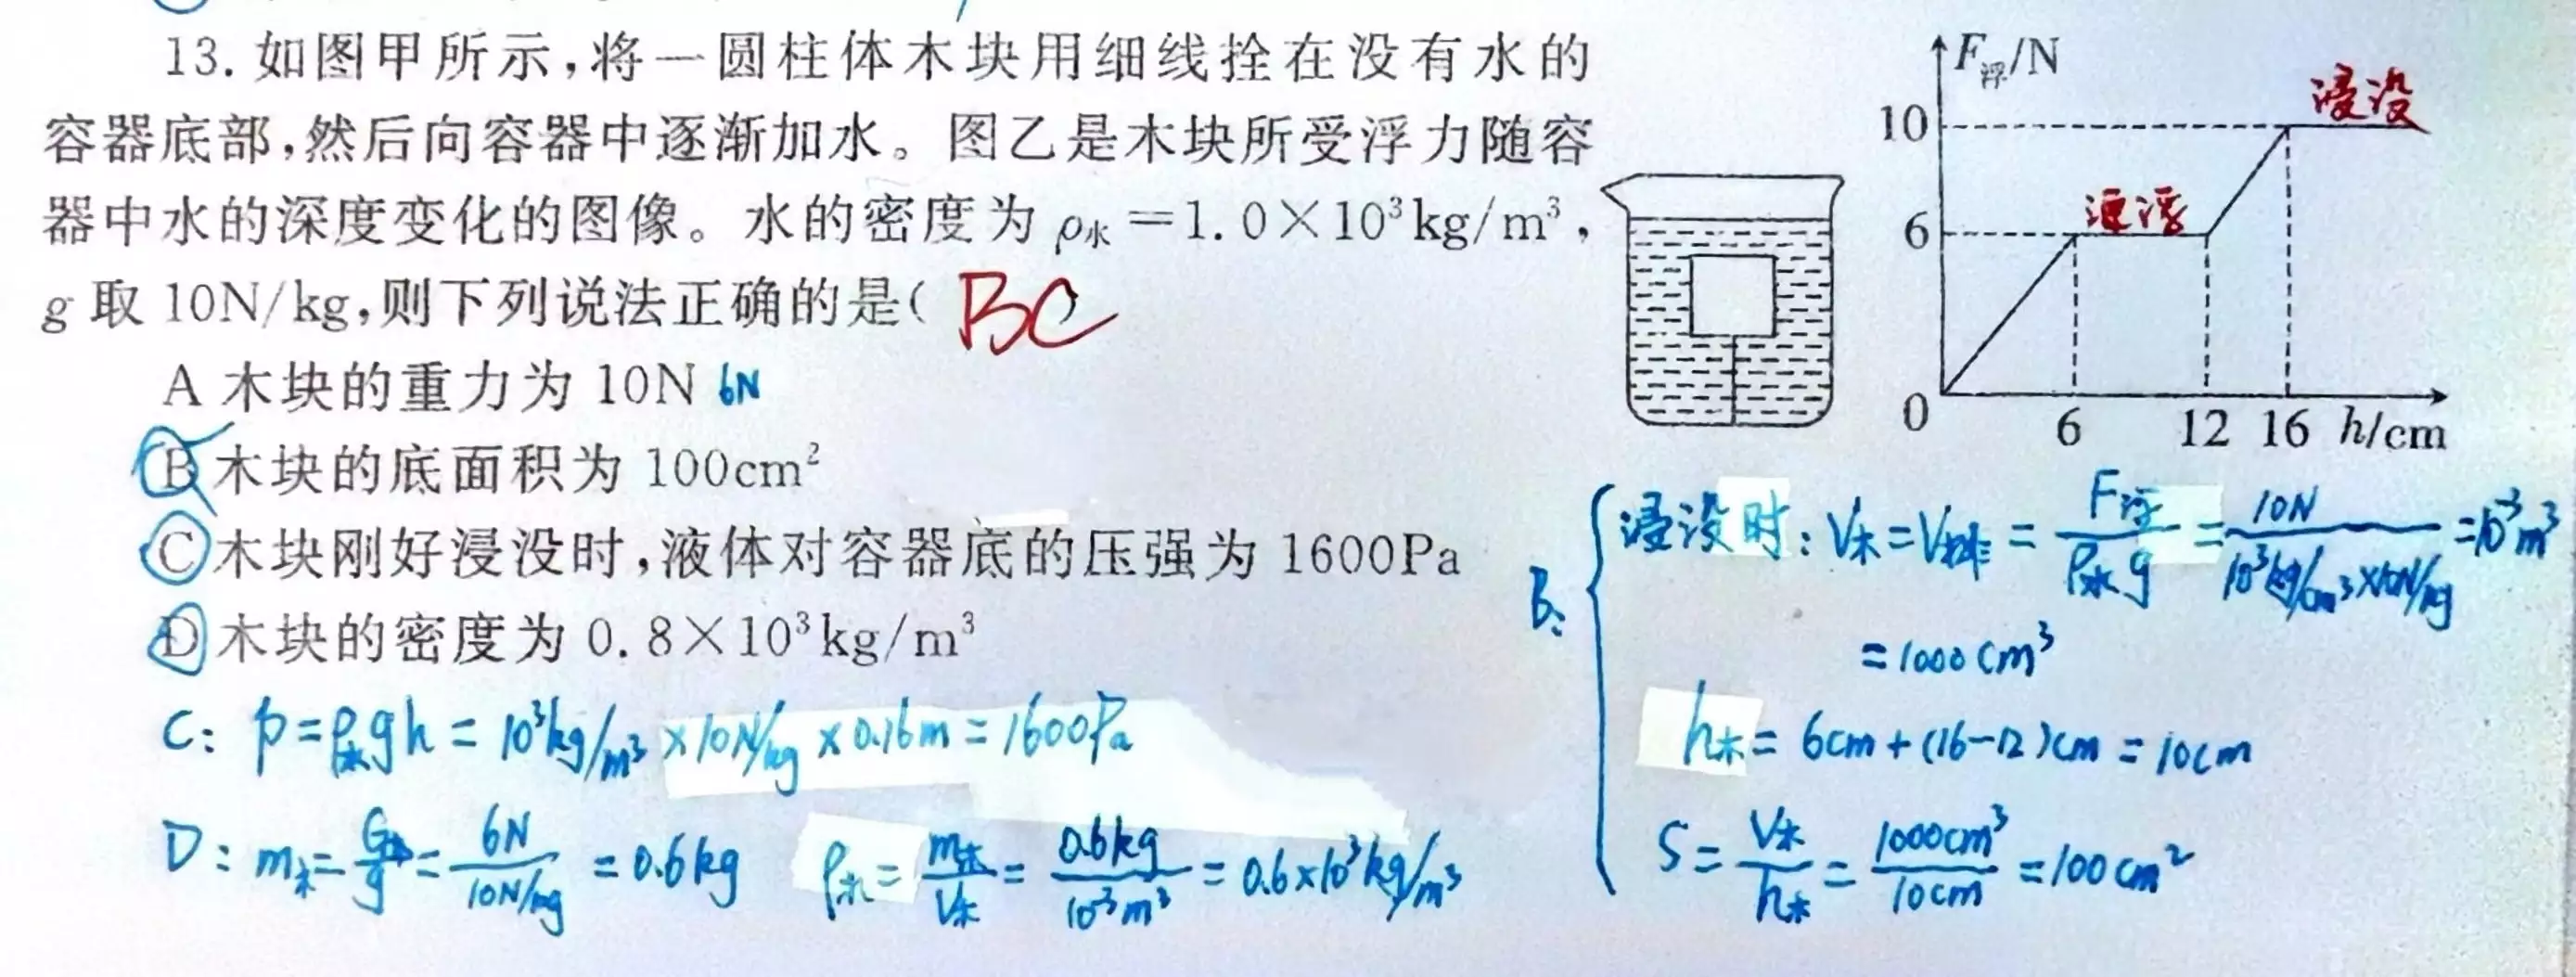 13. 如图甲所示,将一圆柱体木块用细线拴在没有水的
容器底部,然后向容器中逐渐加水。图乙是木块所受浮力随容
器中水的深度变化的图像。水的密度为 ρ水 =1.0×10³kg/m³,
g 取 10N/kg,则下列说法正确的是( BC
A 木块的重力为 10N 6N
B 木块的底面积为 100cm²
C 木块刚好浸没时,液体对容器底的压强为 1600Pa
D 木块的密度为 0.8×10³kg/m³
C: p=ρ水gh = 10³kg/m³ ×10N/kg ×0.16m = 1600Pa
D: m木= G木/g = 6N/10N/kg = 0.6kg ρ木= m木/V木 = 0.6kg/10⁻³m³ = 0.6×10³kg/m³
F浮/N
浸没
10
漂浮
6
0
6 12 16 h/cm
B: 浸没时: V木=V排 = F浮/ρ水g = 10N/10³kg/m³×10N/kg =10⁻³m³
=1000cm³
h木= 6cm+(16-12)cm = 10cm
S= V木/h木 = 1000cm³/10cm =100cm²